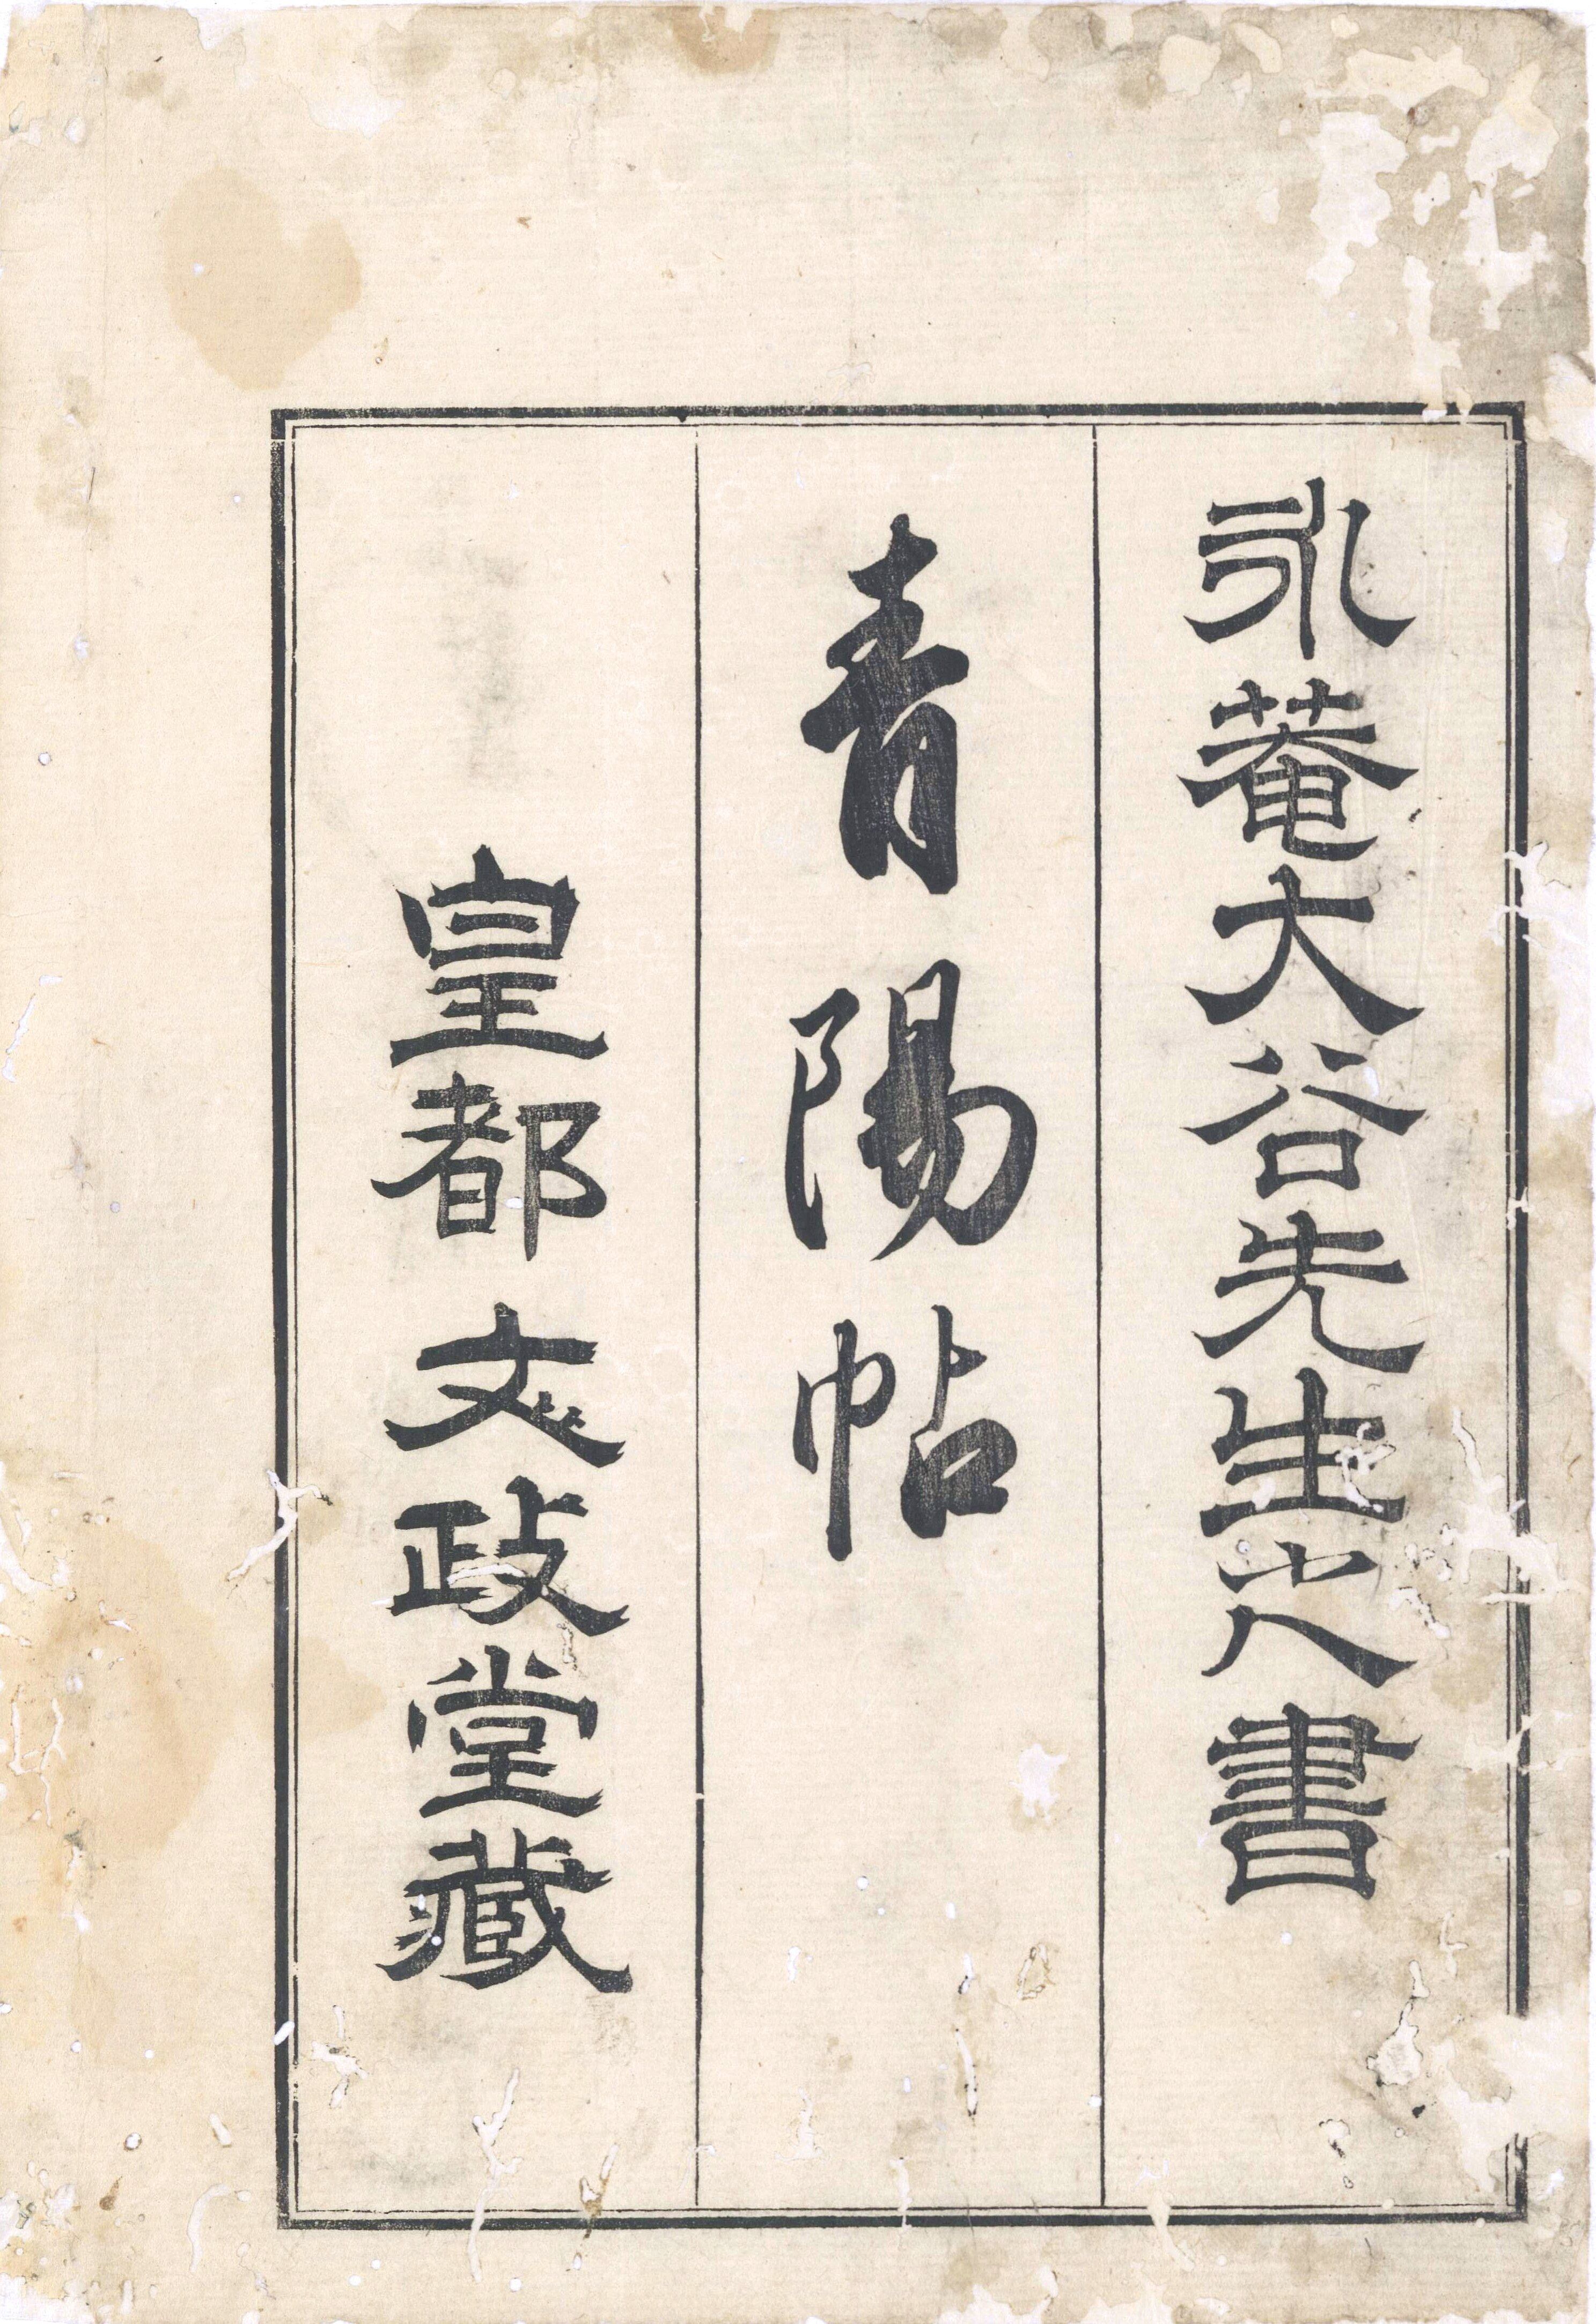 永菴大谷先生書
青陽帖
皇都 文政堂藏